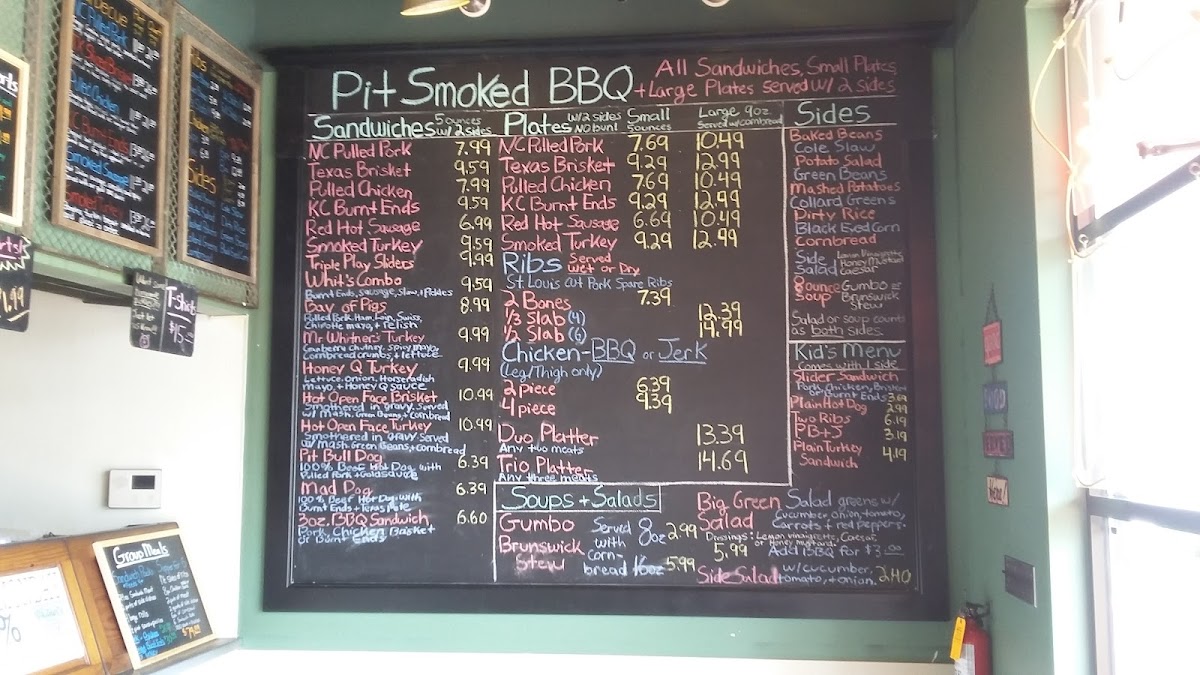 Pit Smoked BBQ
All Sandwiches, Small Plates
+ Large Plates served w/ 2 sides
Sandwiches 5 ounces w/ 2 sides
NC Pulled Pork 7.99
Texas Brisket 9.59
Pulled Chicken 7.99
KC Burnt Ends 9.59
Red Hot Sausage 6.99
Smoked Turkey 9.59
Triple Play Sliders 9.99
Whit's Combo 9.59
Burnt Ends, sausage, slaw, + Pickles
Bay of Pigs 8.99
Pulled Pork, Ham, Loin, Swiss,
Chipotle mayo, + relish
Mr Whitner's Turkey 9.99
Cranberry chutney, spicy mayo,
Cornbread crumbs, + lettuce
Honey Q Turkey 9.99
Lettuce, onion, Horseradish
mayo, + Honey Q sauce
Hot Open Face Brisket 10.99
Smothered in gravy. Served
w/ Mash, Green Beans, + cornbread
Hot Open Face Turkey 10.99
Smothered in gravy Served
w/ Mash, Green Beans, + cornbread
Pit Bull Dog 6.39
100% Beef Hot Dog with
Pulled Pork + Gold sauce
Mad Dog 6.39
100% Beef Hot Dog with
Burnt Ends + Texas Pete
3oz. BBQ Sandwich 6.60
Pork, Chicken, Brisket
or Burnt Ends
Plates w/ 2 sides NO bun! Small 5 ounces Large 9oz. Served w/ cornbread
NC Pulled Pork 7.69 10.49
Texas Brisket 9.29 12.99
Pulled Chicken 7.69 10.49
KC Burnt Ends 9.29 12.99
Red Hot Sausage 6.69 10.49
Smoked Turkey 9.29 12.99
Ribs Served Wet or Dry
St. Louis Cut Pork Spare Ribs
2 Bones 7.39
1/3 Slab (4) 12.39
1/2 Slab (6) 14.99
Chicken - BBQ or Jerk
(Leg/Thigh only)
2 piece 6.39
4 piece 9.39
Duo Platter 13.39
Any two meats
Trio Platter 14.69
Any three meats
Soups + Salads
Gumbo
Brunswick Stew
Served with corn-bread
8oz 2.99
16oz 5.99
Big Green Salad
Salad greens w/
cucumber, onion, tomato,
carrots + red peppers.
Dressings: Lemon vinaigrette, Caesar,
or Honey mustard.
5.99 Add BBQ for $3.00
Side Salad w/ cucumber,
tomato, + onion. 2.40
Sides
Baked Beans
Cole Slaw
Potato Salad
Green Beans
Mashed Potatoes
Collard Greens
Dirty Rice
Black Eyed Corn
Cornbread
Side Salad Lemon Vinaigrette
Honey Mustard
Caesar
8 ounce Soup Gumbo or
Brunswick
Stew
Salad or soup counts
as both sides.
Kid's Menu
Comes with 1 side
Slider Sandwich
Pork, Chicken, Brisket
or Burnt Ends 3.69
Plain Hot Dog 2.99
Two Ribs 6.19
PB + J 3.19
Plain Turkey Sandwich 4.19
NC Pulled Pork
Pulled Chicken
KC Burnt Ends
Smoked Sausage
Smoked Turkey
Ribs
Sides
T-shirts
$15
Group Meals